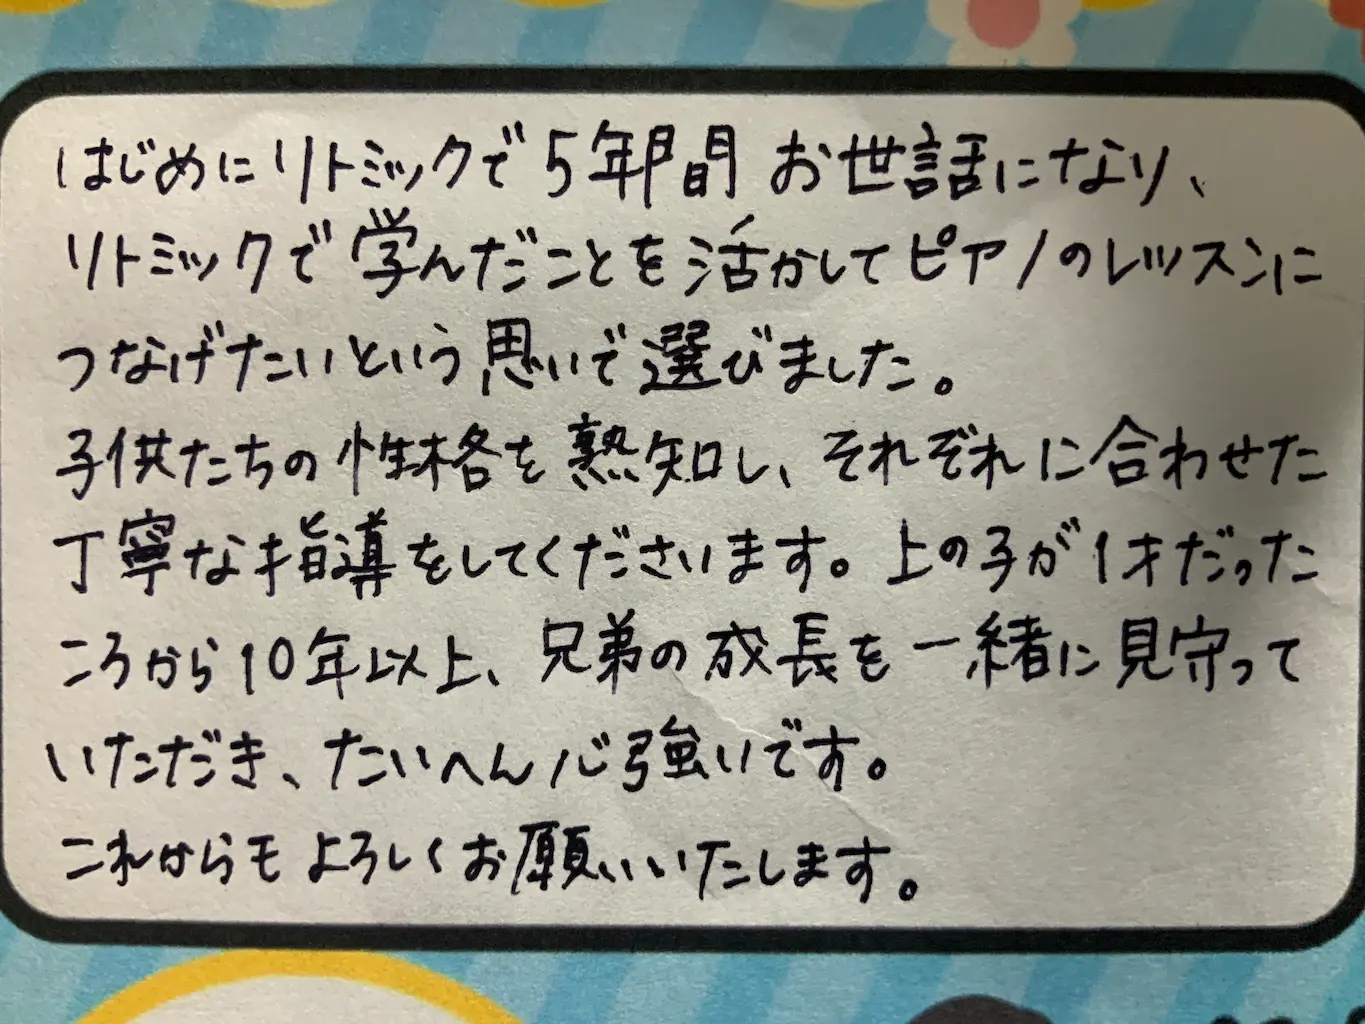 はじめにリトミックで5年間 お世話になり、
リトミックで学んだことを活かしてピアノのレッスンに
つなげたいという思いで選びました。
子供たちの性格を熟知し、それぞれに合わせた
丁寧な指導をしてくださいます。上の子が1才だった
ころから10年以上、兄弟の成長を一緒に見守って
いただき、たいへん心強いです。
これからもよろしくお願いいたします。